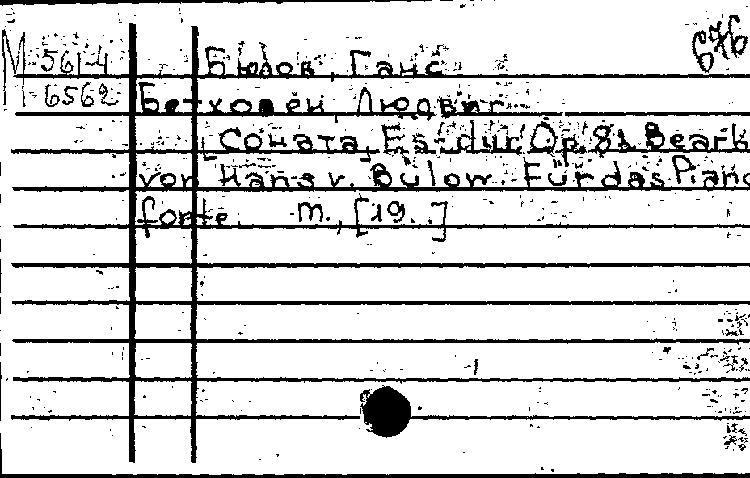 676
М 561-4 Бюлов, Ганс
6562 Бетховен, Людвиг
[Соната, Es-dur, Op. 81 Bearb
von Hans v. Bülow. Für das Piano
forte. М., [19..]